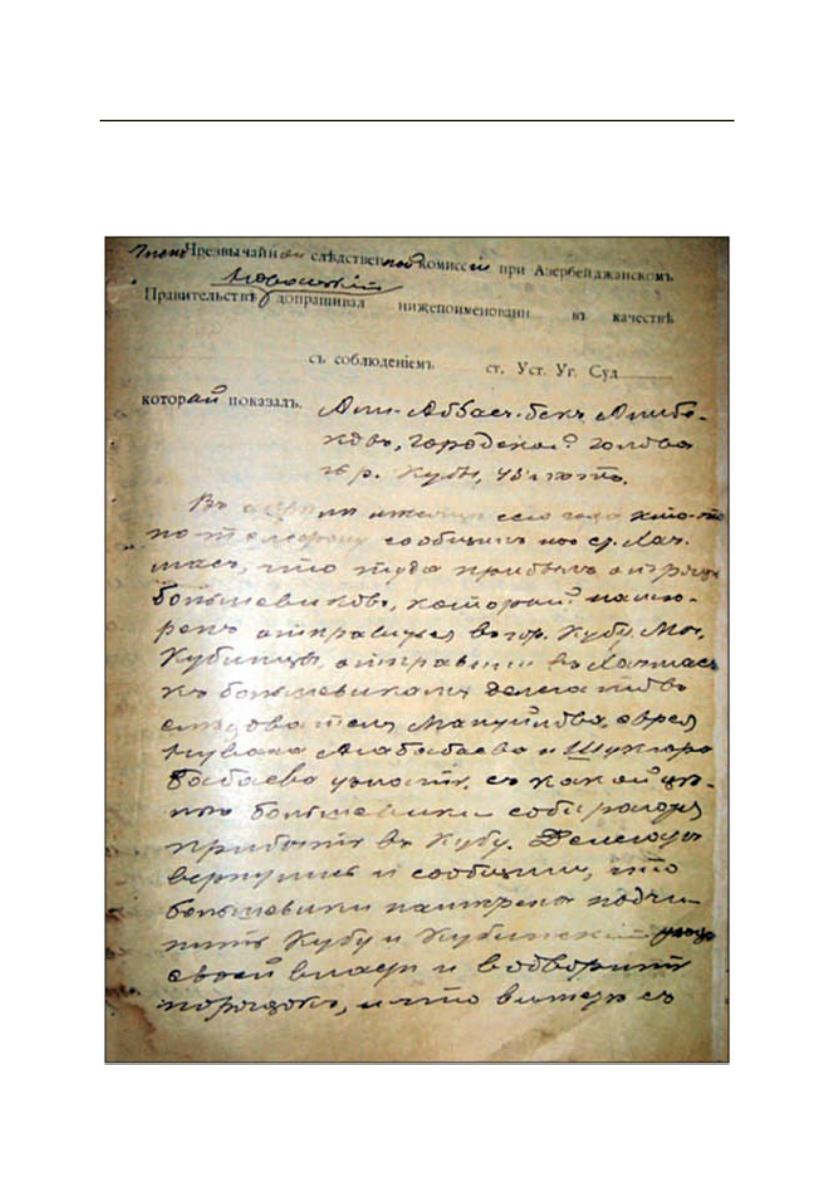 Членъ Чрезвычайной слѣдственной комиссіи при Азербейджанскомъ
Новацкій
Правительствѣ допрашивал нижепоименованн въ качествѣ
съ соблюденіемъ ст. Уст. Уг. Суд
который показалъ.
Али-Аббасъ-бекъ Алибе-
ковъ, городской голова
гор. Кубы, лѣтъ.
Въ мѣсяцѣ сего года кто-то
по телефону сообщилъ со ст. Хач-
масъ, что туда прибылъ отрядъ
большевиковъ, который намѣ-
ренъ отправиться въ гор. Кубу. Мы,
Кубинцы, отправили въ Хачмасъ
къ большевикамъ делегатовъ
слѣдователя Мануйлова, еврея
Агабабаева и Шукюра
Бабаева узнать, съ какой цѣ-
лью большевики собираются
прибыть въ Кубу. Делегаты
вернулись и сообщили, что
большевики намѣрены подчи-
нить Кубу и Кубинскій уѣздъ
своей власти и водворить
порядокъ, и что вмѣстѣ съ